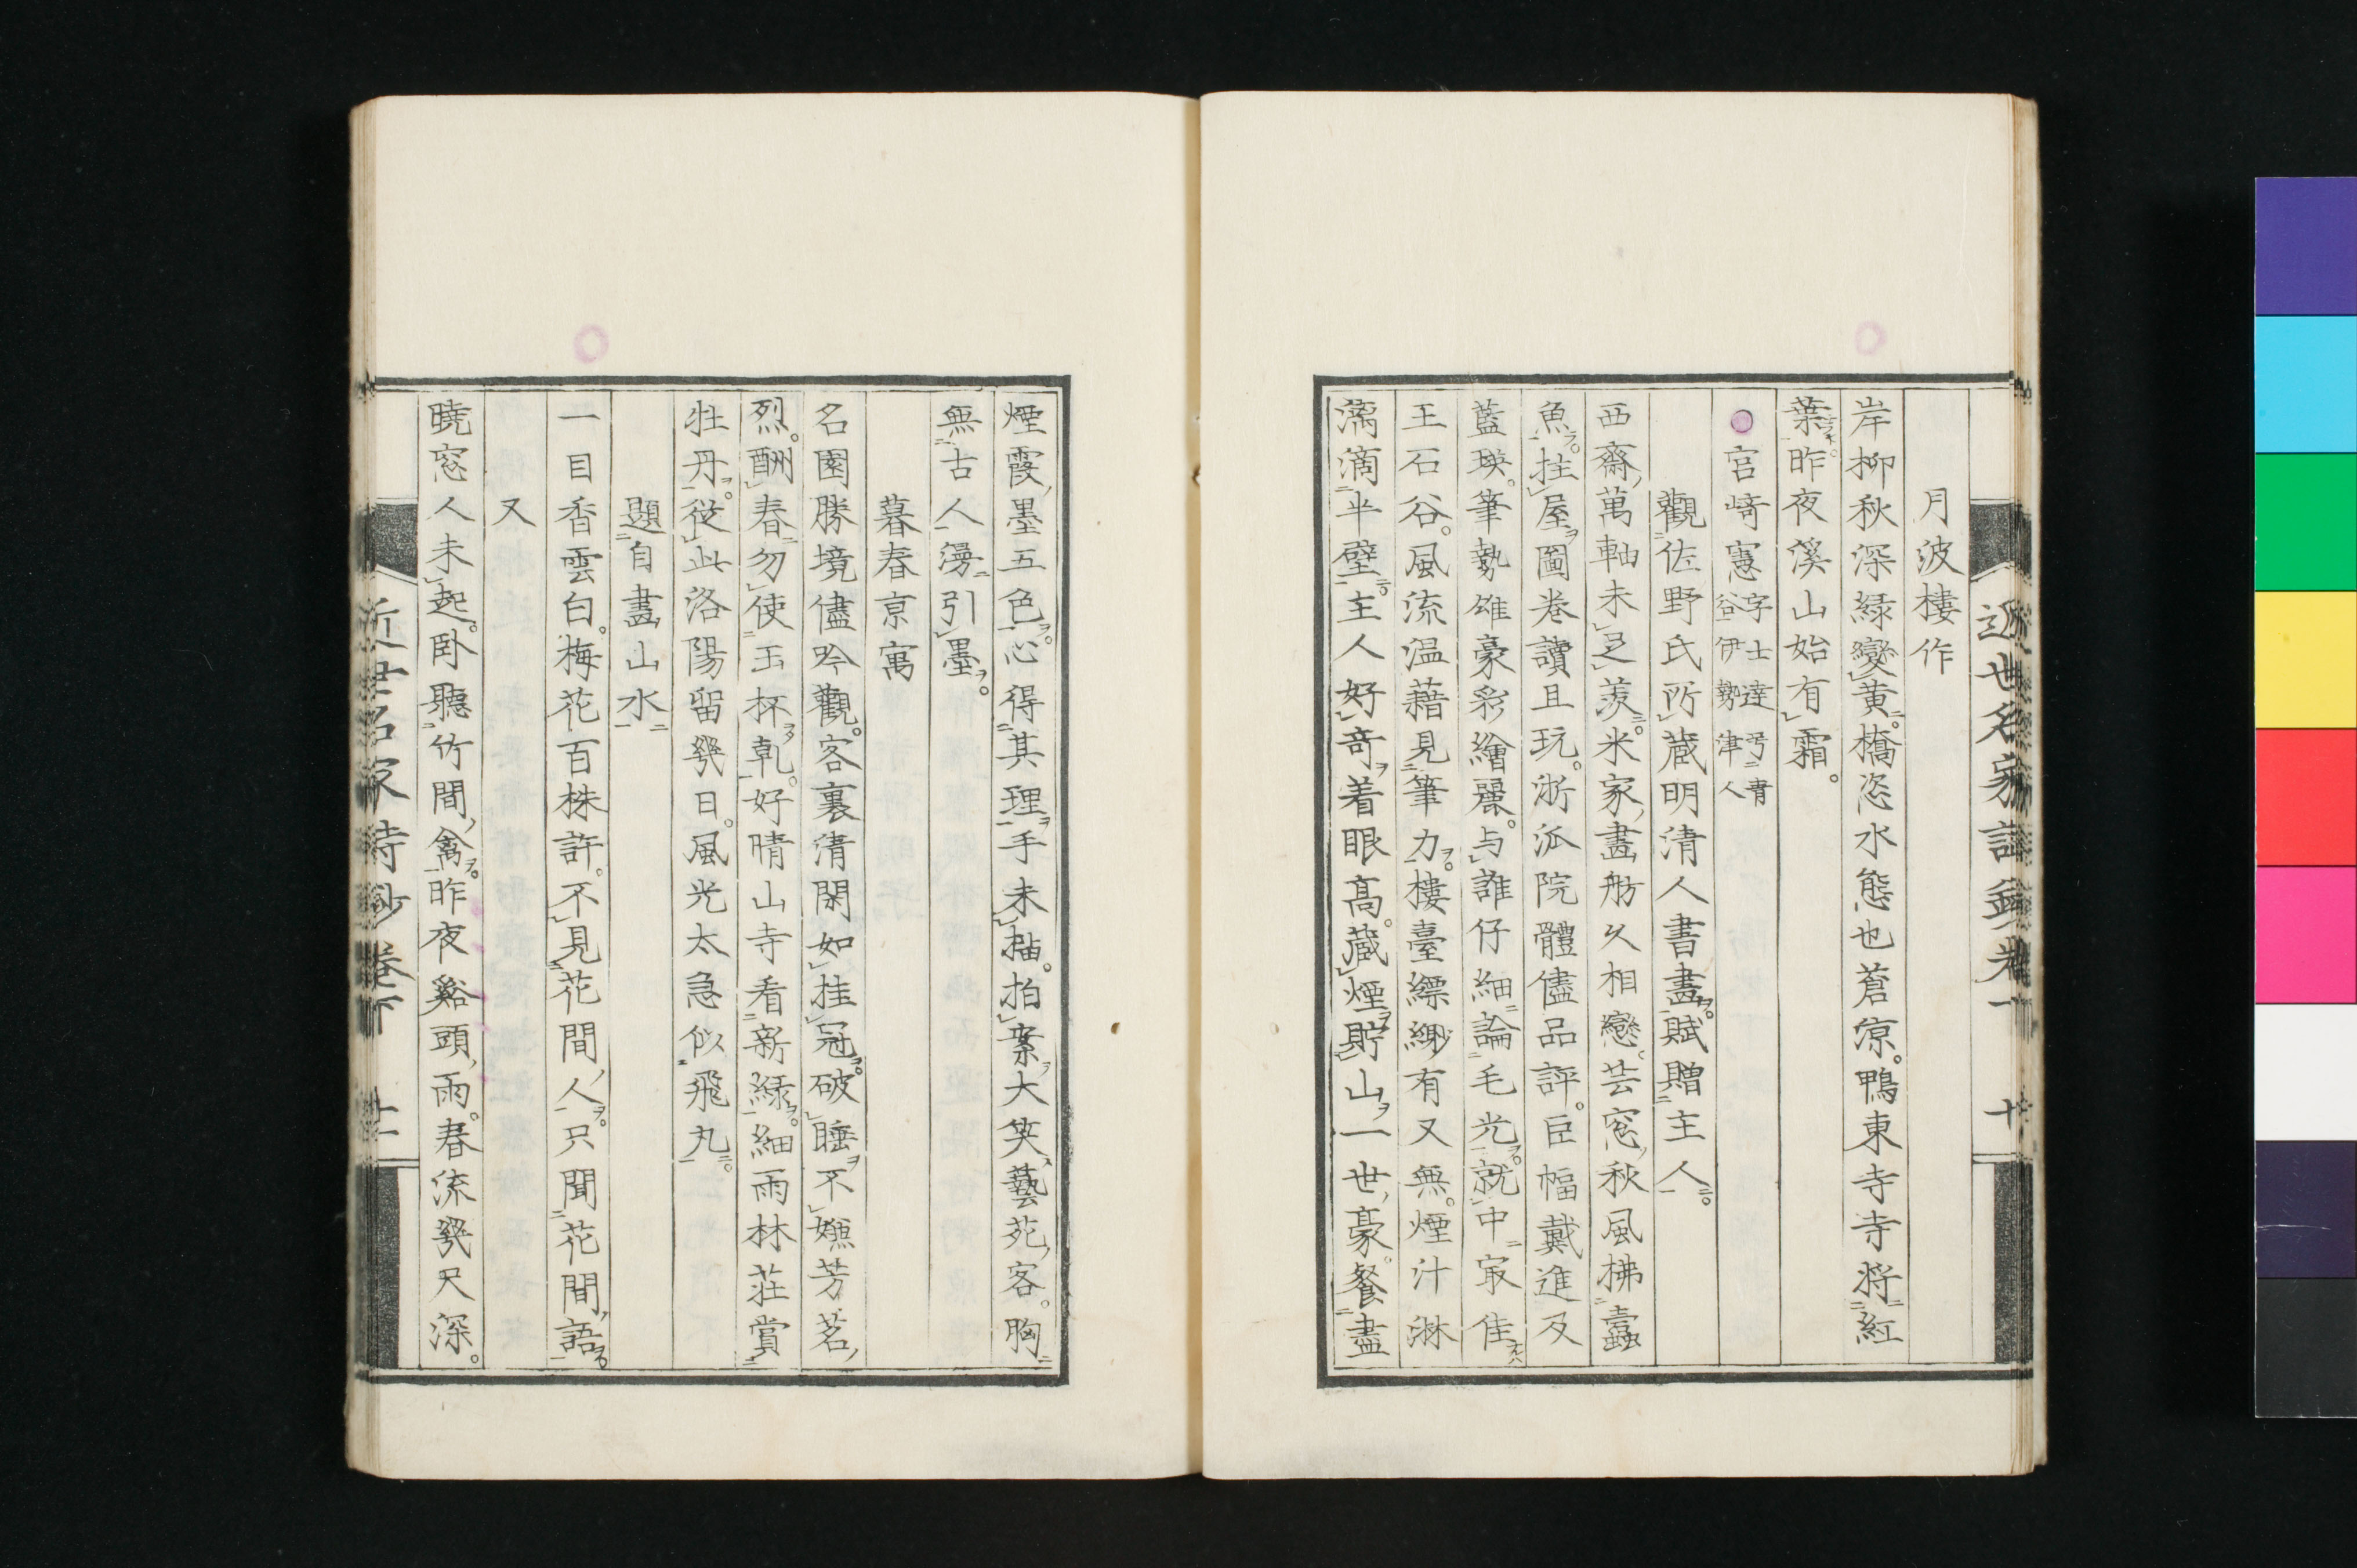 月波樓作
岸柳秋深緑變黄橋恣水態也蒼涼鴨東寺寺將紅
葉昨夜溪山始有霜
宮崎憲字士達号青
谷伊勢津人
觀佐野氏所蔵明清人書畫賦贈主人
西齋萬軸未足羨米家畫舫久相戀芸窓秋風拂蠹
魚拄屋圖卷讀且玩浙派院體儘品評巨幅戴進及
藍瑛筆勢雄豪彩繪麗与誰仔細論毛光就中㝡佳
王石谷風流温藉見筆力樓臺縹緲有又無煙汁淋
漓滴半壁主人好奇着眼高蔵煙貯山一世豪餐盡
煙霞墨五色心得其理手未抽拍案大笑藝苑客胸
無古人漫引墨
暮春京寓
名園勝境儘吟觀客裏清閑如挂冠破睡不嫌芳茗
烈酬春勿使玉杯乾好晴山寺看新緑細雨林荘賞
牡丹從此洛陽留幾日風光太急似飛丸
題自畫山水
一目香雲白梅花百株許不見花間人只聞花間語
又
曉窓人未起卧聽竹間禽昨夜谿頭雨春流幾尺深
近世名家詩鈔卷下